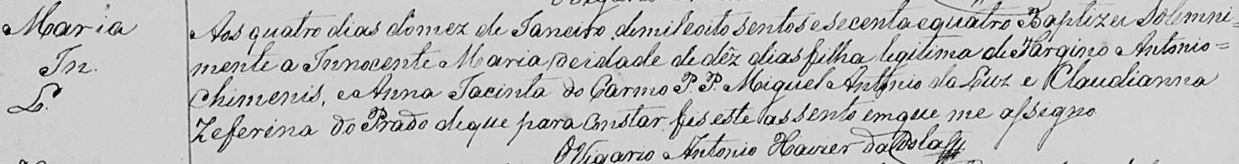 Maria
In.
L.
Aos quatro dias domez de Janeiro demil eoito sentos e secenta e quatro Baptizei Solemni=
mente a Innocente Maria de idade de dêz dias filha legitima de Targino Antonio=
Chimenis, e Anna Jacinta do Carmo P.P. Miguel Antonio da Luz e Claudianna
Zeferina do Prado de que para Constar fis este assento em que me assigno
O Vigario Antonio Xavier da